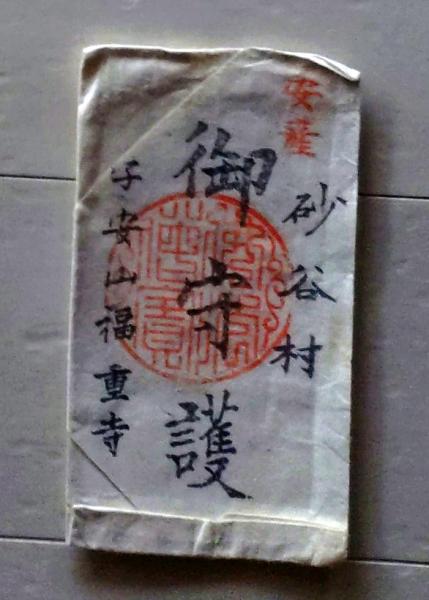 安産
砂谷村
御守護
子安山福重寺